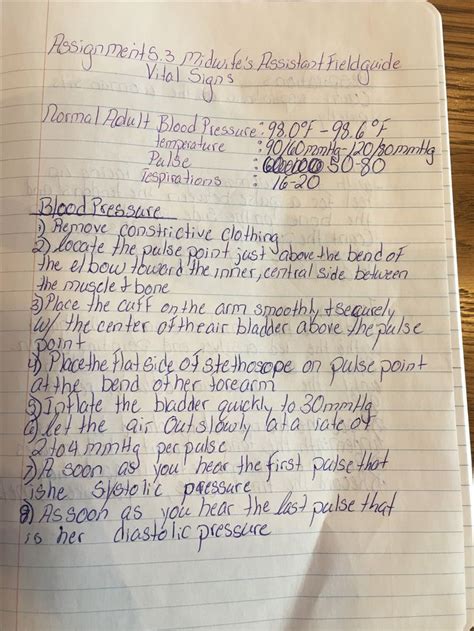 Assignment 5.3 Midwife's Assistant Fieldguide
Vital Signs
Normal Adult Blood Pressure: 98.0°F - 98.6°F
temperature : 90/60mmHg-120/80mmHg
Pulse : 50-80
respirations : 16-20
Blood Pressure
1) Remove constrictive clothing
2) Locate the pulse point just above the bend of
the elbow toward the inner, central side between
the muscle + bone
3) Place the cuff on the arm smoothly + securely
w/ the center of the air bladder above the pulse
point
4) Place the flat side of stethoscope on pulse point
at the bend of her forearm
5) Inflate the bladder quickly to 30mmHg
6) let the air out slowly at a rate of
2 to 4 mmHg per pulse
7) A soon as you hear the first pulse that
is he systolic pressure
8) As soon as you hear the last pulse that
is her diastolic pressure